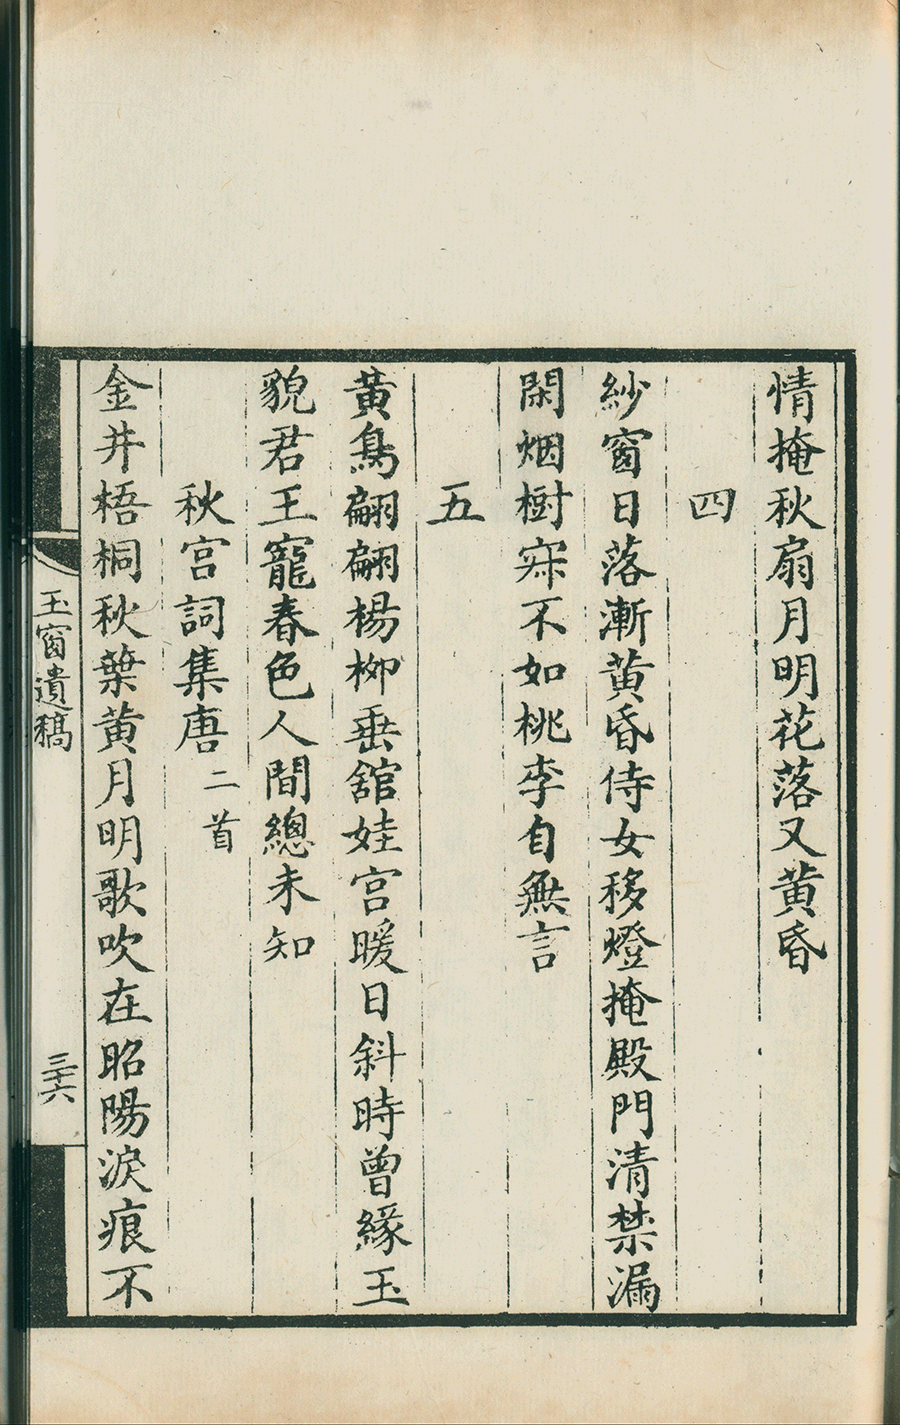 情掩秋扇月明花落又黄昏
四
紗窗日落漸黄昏侍女移燈掩殿門清禁漏
閑烟樹寂不如桃李自無言
五
黃鳥翩翩楊柳垂舘娃宫暖日斜時曾緣玉
貌君王寵春色人間總未知
秋宫詞集唐二首
金井梧桐秋葉黄月明歌吹在昭陽淚痕不
玉窗遺稿
三十六